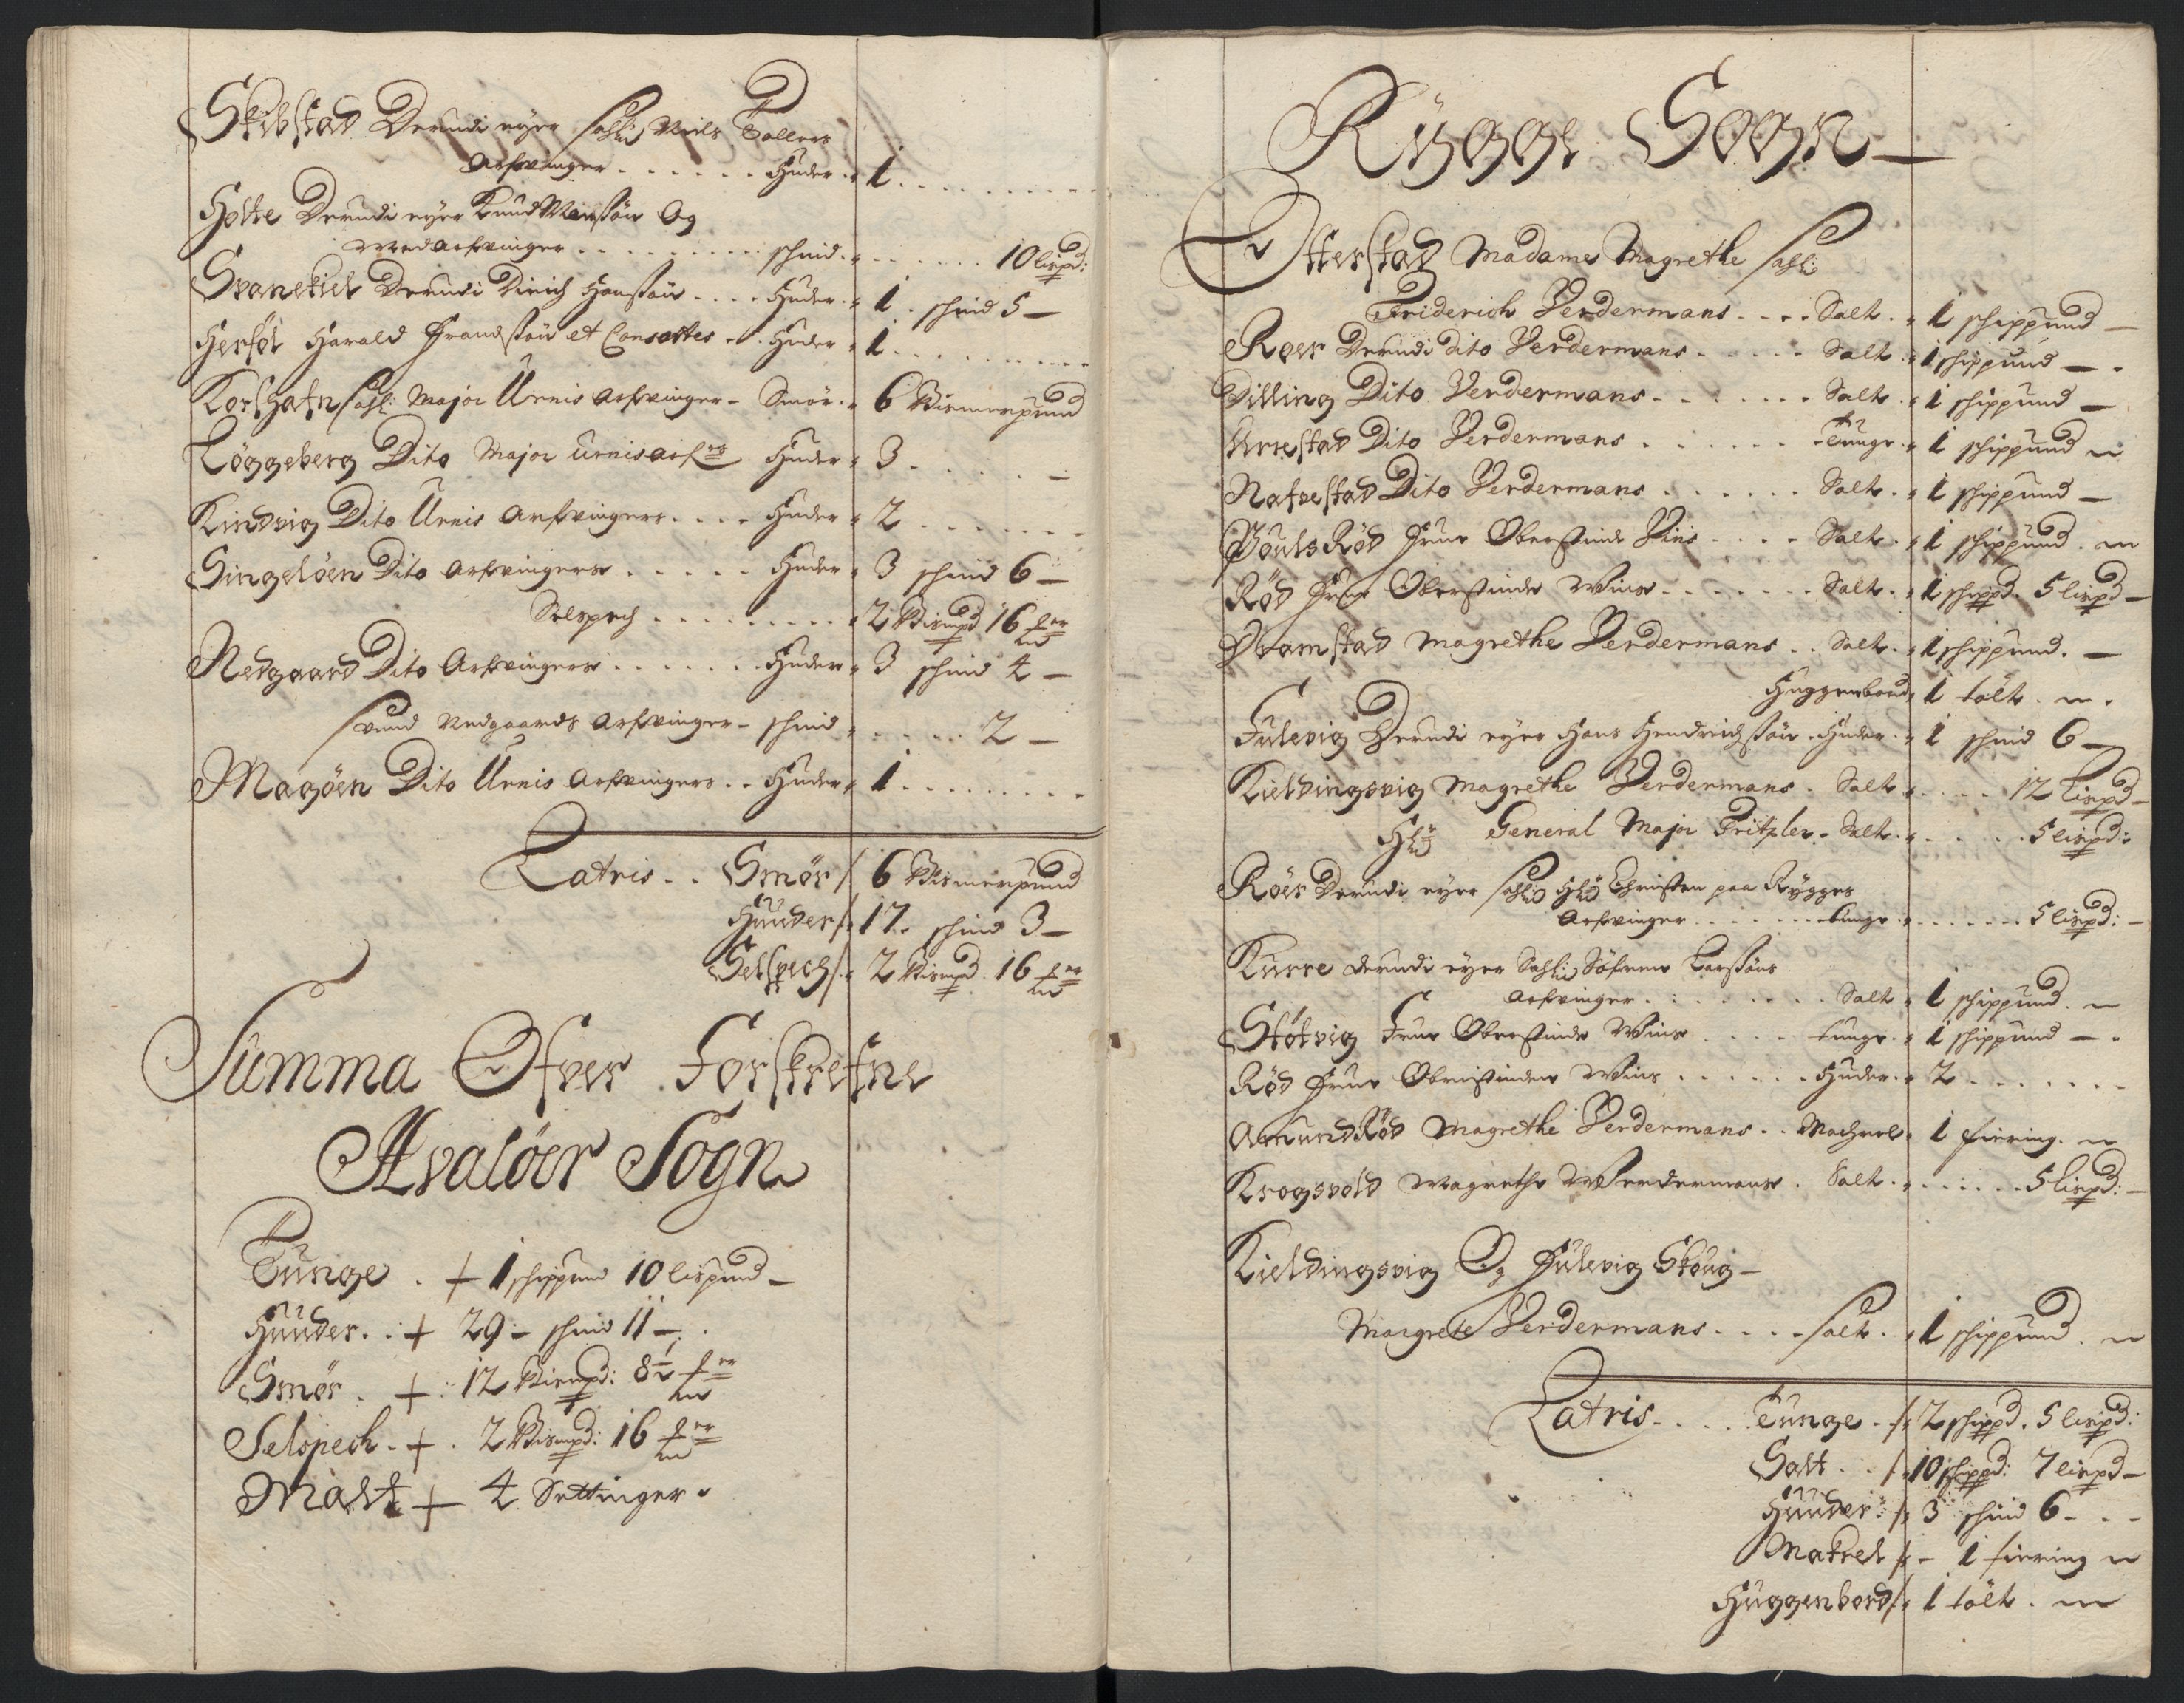 Skibstad Derudi eyer Sahl: Niels Tollers
Arfvinger . . . . . . Huder . 1 . . . . . . .
Holte Derudi eyer Knud Monssön Og
Medarfvinger . . . . . . . . . schind . . . . . . 10 lispd:
Svanekiel Derudi Dirich Hanssön . . . . Huder . 1 . schind 5 –
Herföl Harald Frandssön et Consortes . . Huder 1 . . . . . . .
Korshafn Sahl: Major Urnis Arfvinger – Smör . 6 Bismerpund
Löggeberg Dito Major Urnis arf: Huder 3 . . . . –
Kindvig Dito Urnis Arfvingers . . . . Huder 2 . . . . . .
Singelöen Dito Arfvingere . . . . . Huder 3 schind 6 –
Selspech . . . . . . . . . 2 Bismpd 16
Nedgaard Dito Arfvingere . . . . . . . Huder 3 schind 4 –
Svend Nedgaards Arfvinger – schind . . . . . . 2 –
Magöen Dito Urnis Arfvingers . . Huder 1 . . . . . . . .
Latris . . Smör / 6 Bismerpund
Huuder / 17. schind 3 –
Selspech / 2 Bismpd 16
Summa Ofver Forskrefne
Hvalöer Sogn
Tunge . + 1 schippund 10 lispund –
Huuder . : + 29 – schind 11 – .
Smör . + : 12 Bismpd: 8½
Selspech . + . 2 Bismpd: 16
Malt + 4 Settinger .
Rygge Sogn –
Otterstad Madame Magrethe Sahl:
Friderich Verdermans . . . . Salt . 1 schippund –
Roer Derudi dito Verdermans . . . . . Salt . 1 schippund – .
Dilling Dito Verdermans . . . . . . . Salt . 1 schippund –
Arrestad Dito Verdermans . . . . . . Tunge . 1 schippund
Nafvestad Dito Verdermans . . . . . . Salt . 1 schippund –
PoulsRöd Frue Oberstinde Vins . . . . Salt . 1 schippund .
Röd Frue Oberstinde Wins . . . . . . . Salt . 1 schippd . 5 lispd –
Dramstad Magrethe Verdermans . . Salt . 1 schippund . –
Huggenbord 1 tölt . .
Fulevig Derudi eyer Hans Hendrichssön . Huder . 1 schind 6 –
Kieldingsvig Magrethe Verdermans . Salt . . . . . 12 Lispd –
General Major Tritzler . Salt . . . . . . 5 lispd:
Röer Derudi eyer Sahl: Christen paa Rygges
Arfvinger . . . . . . . tunge . . . . . . . 5 lispd: –
Kurre derudi eyer Sahl: Söfrene Larssöns
Arfvinger . . . . . . . . Salt 1 schippund .
Stötvig Frue Oberstinde Wins . . . . tunge . 1 schippund – .
Röd Frue Oberstinden Wins . . . . . . Huder . 2 . . . . . . .
AamundRöd Magrethe Verdermans . . Machrel 1 fiering .
Krogsvold Magrethe Werdermans . Salt . . . . . . . 5 lispd: –
Kieldingsvig Og Fulevig Skoug –
Margrete Verdermans . . . . Salt . 1 schippund .
Latris . . . . Tunge . / 2 schippd . 5 lispd:
Salt . . / 10 schippd: 7 lispd –
Huuder : / 3 schind 6 – . –
Makrel / – 1 fiering
Huggenbord / 1 tölt .